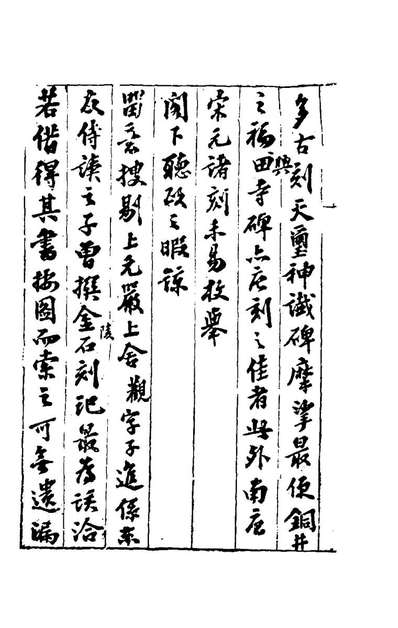 多古刻天璽神讖碑摩挲最便銅井
之福興田寺碑亦唐刻之佳者此外南唐
宋元諸刻未易枚舉
閣下聽政之暇諒
留意搜剔上元嚴上舍觀字子進係冬
友侍讀之子曾撰金陵石刻記最為該洽
若借得其書按圖而索之可無遺漏